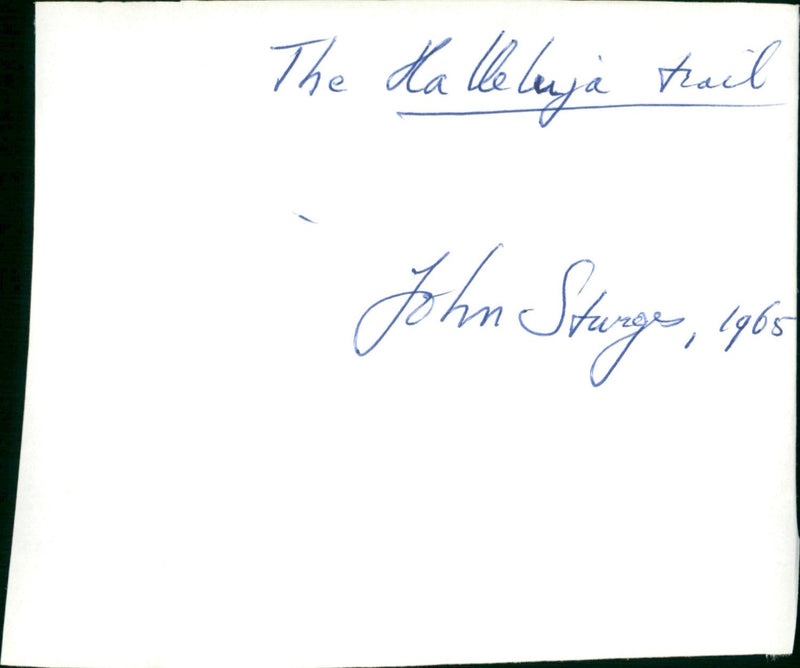 The Halleluja trail
John Sturges, 1965